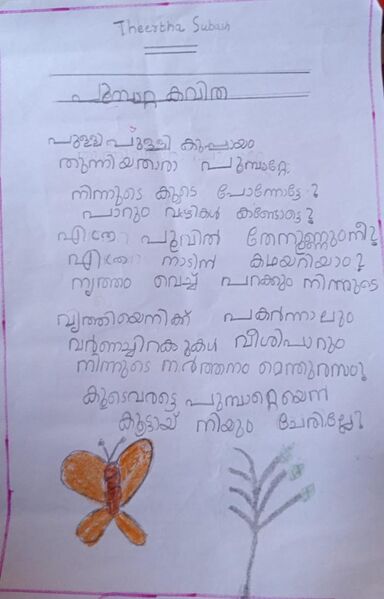 Theertha Subash
പൂമ്പാറ്റ കവിത
പുള്ളി പുള്ളി കുപ്പായം
തുന്നിയതാരാ പൂമ്പാറ്റേ
നിന്നുടെ കൂടെ പോന്നോട്ടേ ?
പാറും വഴികൾ കണ്ടോട്ടെ ?
പൂവിൽ തേനുണ്ണുംനീ ?
നാടിൻ കഥയറിയാം ?
നൃത്തം വെച്ച് പറക്കും നിന്നുടെ
വൃത്തിയെനിക്ക് പകർന്നാലും
വർണ്ണച്ചിറകുകൾ വീശിപാറും
നിന്നുടെ നർത്തനം മെന്തുരസം
കൂടെവരട്ടെ പൂമ്പാറ്റെയെൻ
കൂട്ടായ് നിയും ചേരില്ലേ ?